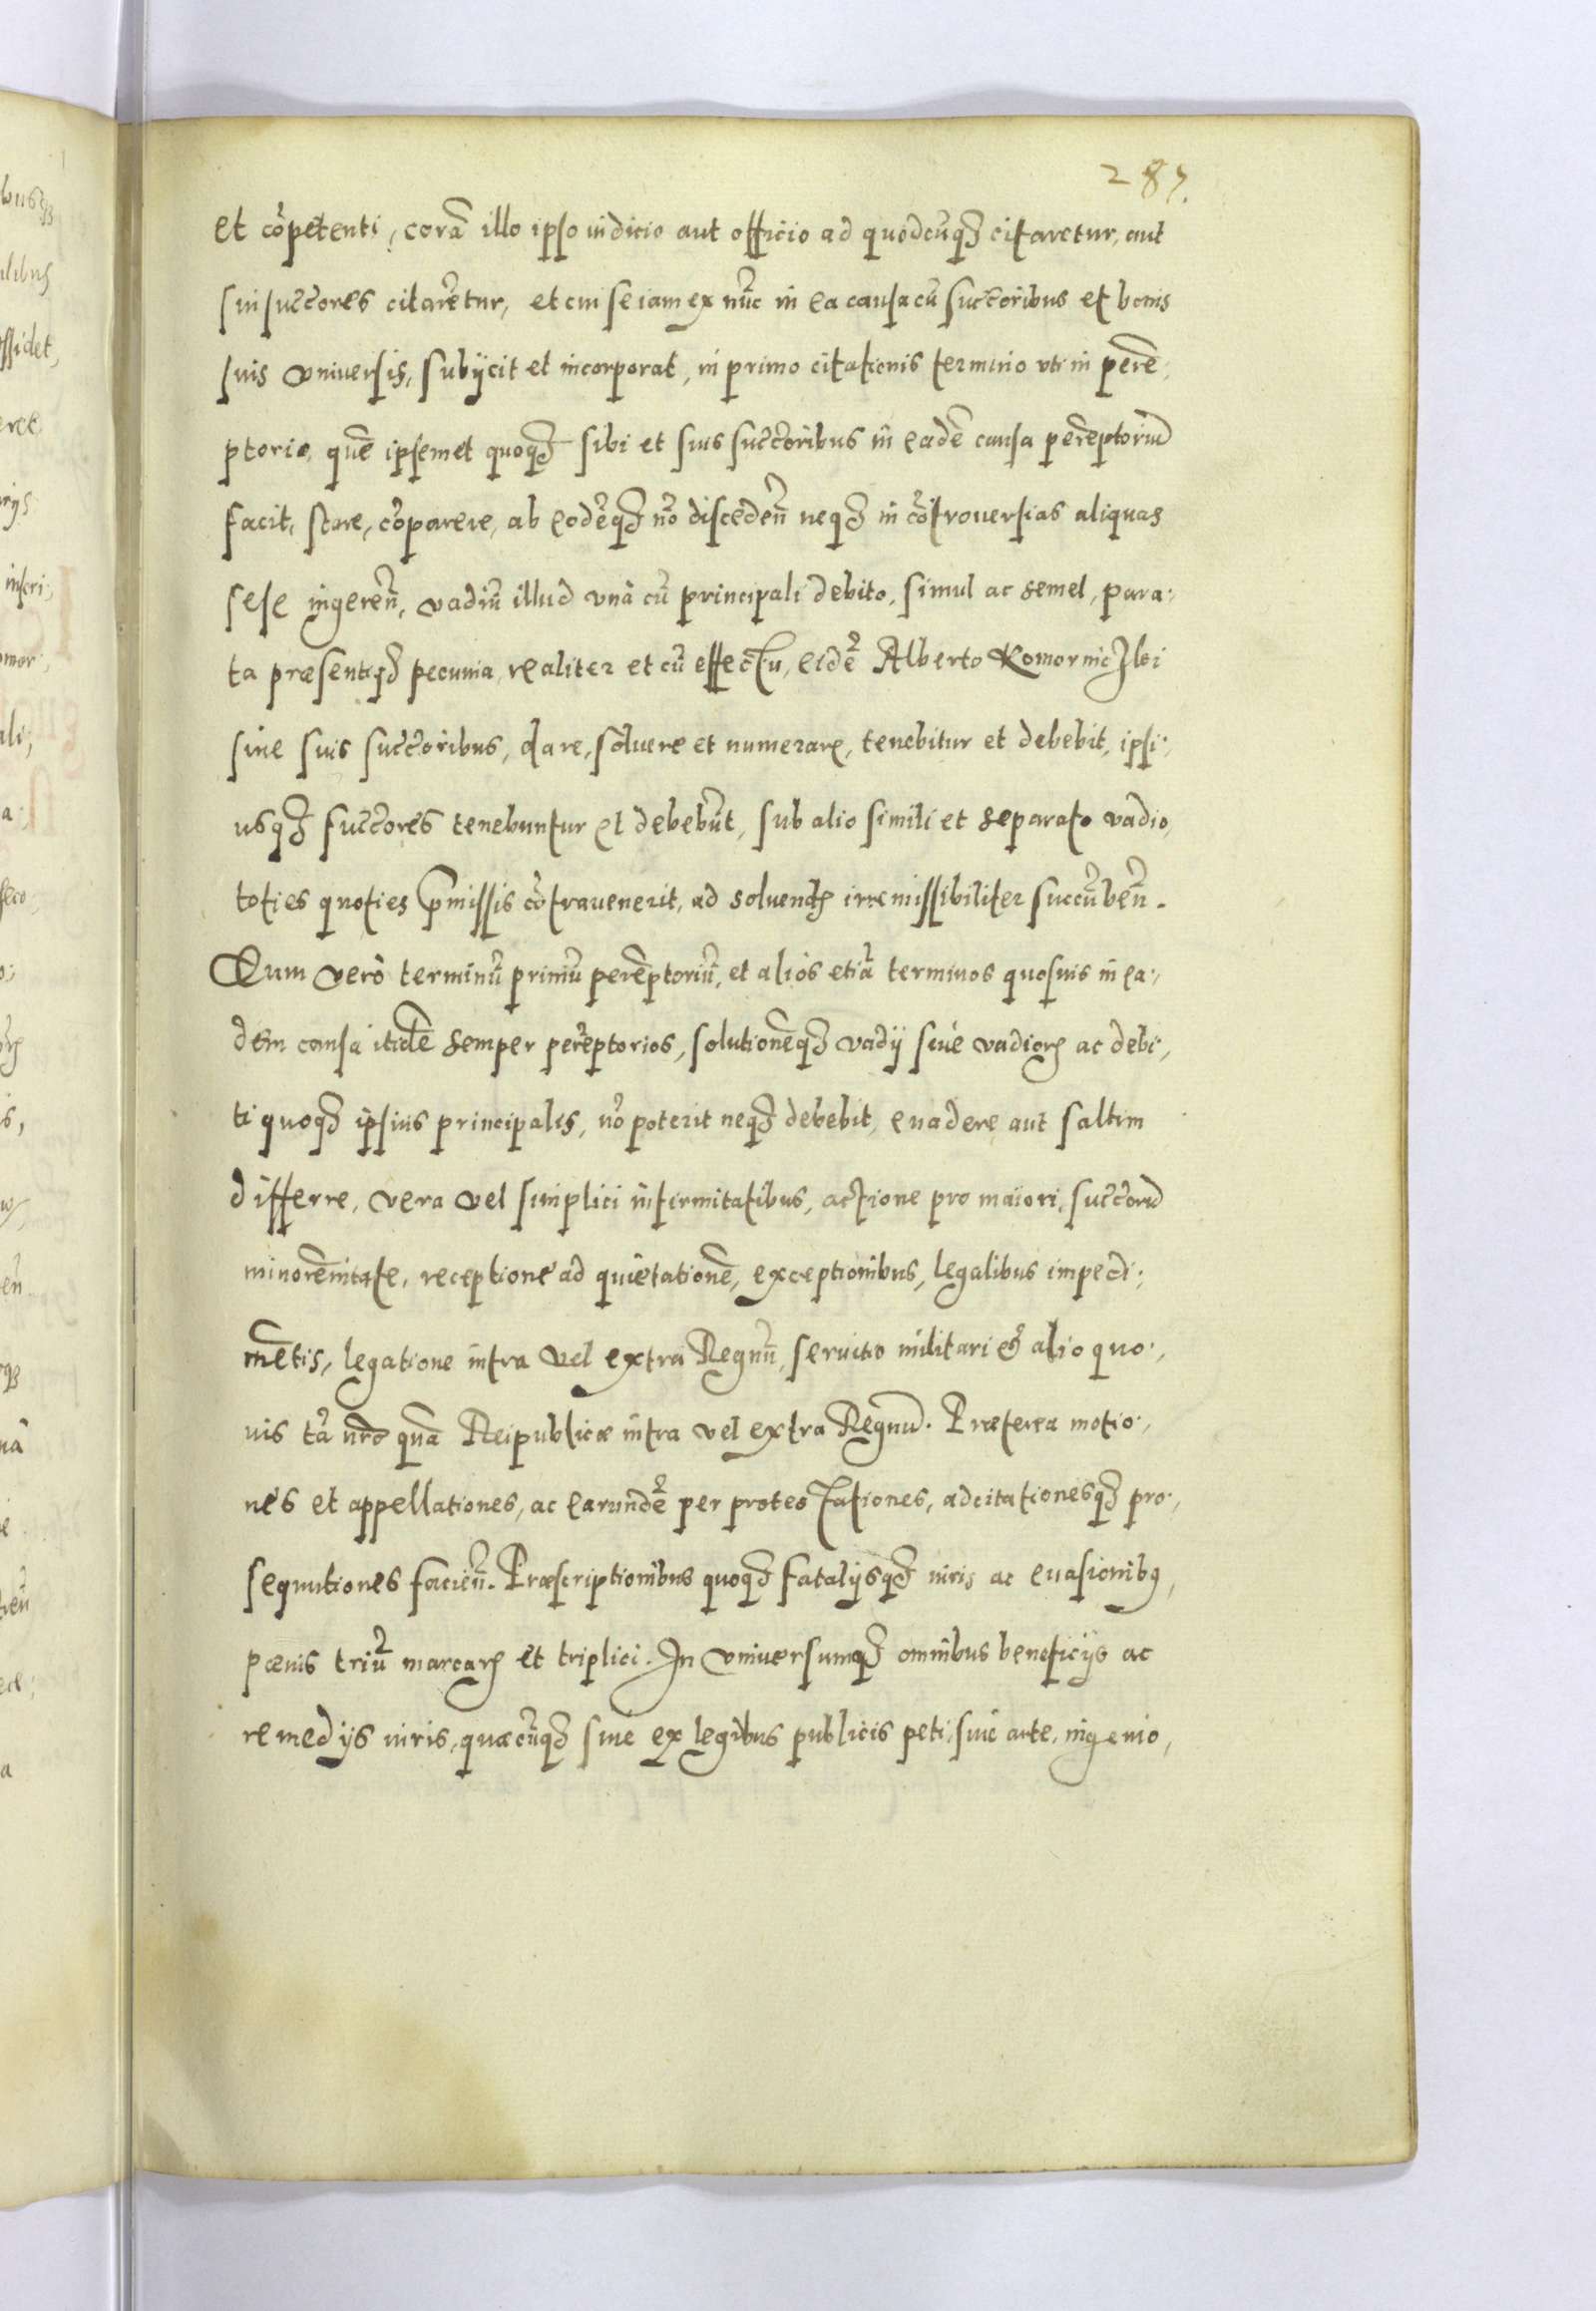 287.
et cõpetenti, corã illo ipso iudicio aut officio ad quodcũq3 citaretur, aut
sui succ̃ores citarẽtur, et cui se iam ex nũc in ea causa cũ succ̃oribus et bonis
suis vniuersis, subÿcit et incorporat, in primo citationis termino vti in perẽ,
ptorio, quẽ ipsemet quoq3 sibi et suis succ̃oribus in eadẽ causa perẽptoriũ
facit, stare, cõparere, ab eodẽq3 nõ discedeñ neq3 in cõtrouersias aliquas
sese ingereñ, vadiũ illud vnà cũ principali debito, simul ac semel, para,
ta præsentiq3 pecunia, realiter et cũ effectu, eidẽ Alberto Komorniczki
siue suis succ̃oribus, dare, soluere et numerare, tenebitur et debebit, ipsi,
usq3 succ̃ores tenebuntur et debebũt, sub alio simili et separato vadio,
toties quoties p̃missis cõtrauenerit, ad soluendꝝ irremissibiliter succũbeñ.
Quem verò terminũ primũ perẽptoriũ, et aliòs etiã terminos quosuis in ea,
dem causa itidẽ semper perẽptorios, solutionẽq3 vadÿ siuè vadioꝝ ac debi,
ti quoq3 ipsius principalis, nõ poterit neq3 debebit, euadere aut saltim
differre, vera vel simplici infirmitatibus, actione pro maiori, succ̃orũ
minorẽnitate, receptione ad quietationẽ, exceptionibus, legalibus impedi,
mẽtis, legatione intra vel extra Regnũ, seruitio militari et alio quo,
uis tã nr̃o quã Reipublicæ intra vel extra Regnũ. Præterea motio,
nes et appellationes, ac earundẽ per protestationes, adcitationesq3 pro,
sequutiones facieñ. Præscriptionibus quoq3 fatalÿsq3 iuris ac euasionibꝰ,
pœnis triũ marcaꝝ et triplici. In vniuersumq3 omnibus beneficÿs ac
remedÿs iuris, quæcũq3 siue ex legibus publicis peti, siuè arte, ingenio,